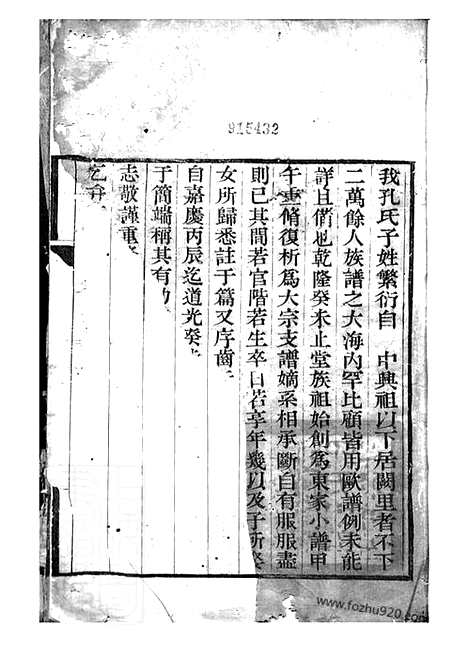 915432
我孔氏子姓繁衍自　中興祖以下居闕里者不下
二萬餘人族譜之大海內罕比顧皆用歐譜例未能
詳且備也乾隆癸未止堂族祖始創為東家小譜甲
午重脩復析為大宗支譜嫡系相承斷自有服服盡
則已其間若官階若生卒日若享年幾以及子所娶
女所歸悉註于篇又序齒
自嘉慶丙辰迄道光癸
于簡端稱其有功
志敬謹重
www.fozhu920.com